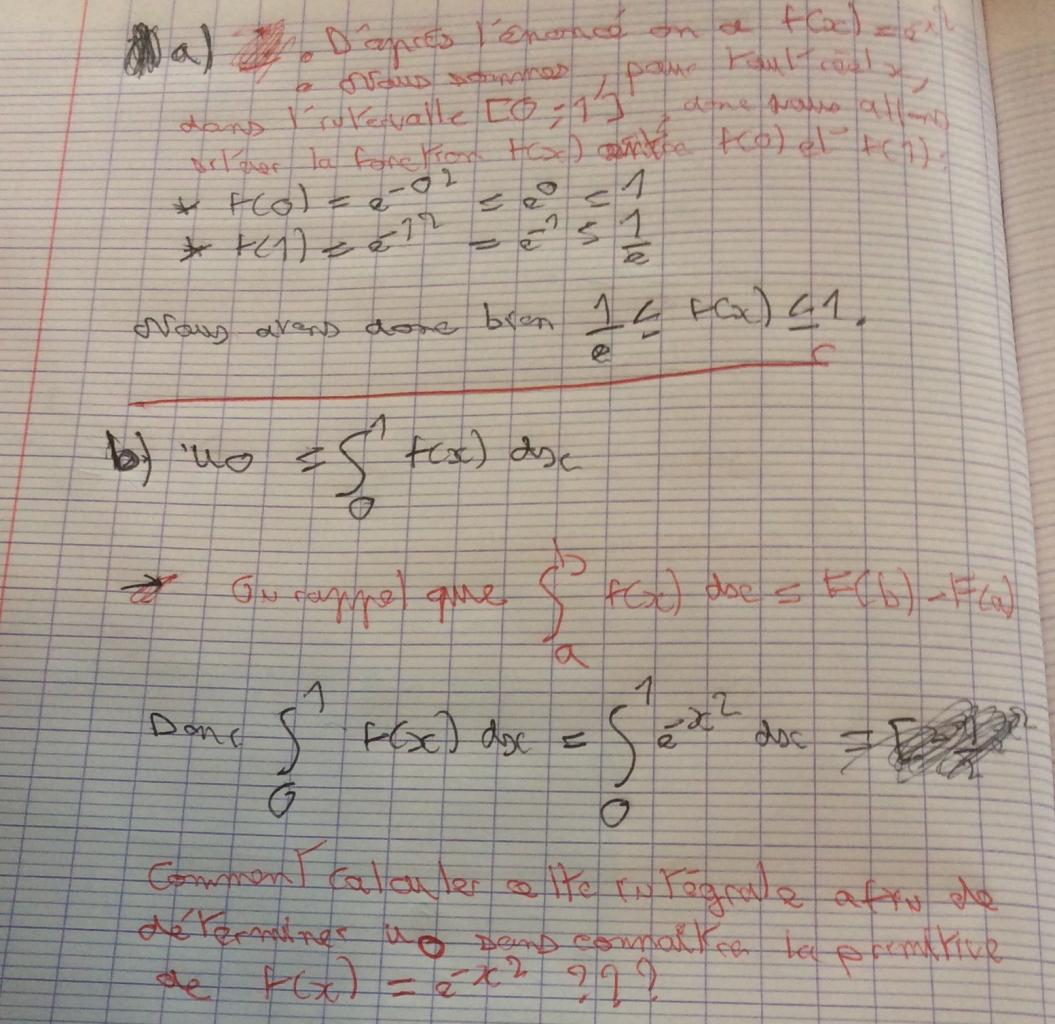 a) • D'après l'énoncé on a f(x) = e^-x²
• Nous sommes, pour tout réel x,
dans l'intervalle [0 ; 1], donc nous allons
la fonction f(x) entre f(0) et f(1).
* f(0) = e^-0² = e^0 = 1
* f(1) = e^-1² = e^-1 = 1/e
Nous avons donc bien 1/e ≤ f(x) ≤ 1.
b) u0 = ∫₀¹ f(x) dx
→ On rappel que ∫ₐᵇ f(x) dx = F(b) - F(a)
Donc ∫₀¹ f(x) dx = ∫₀¹ e^-x² dx =
Comment calculer cette intégrale afin de
déterminer u0 sans connaître la primitive
de f(x) = e^-x² ???